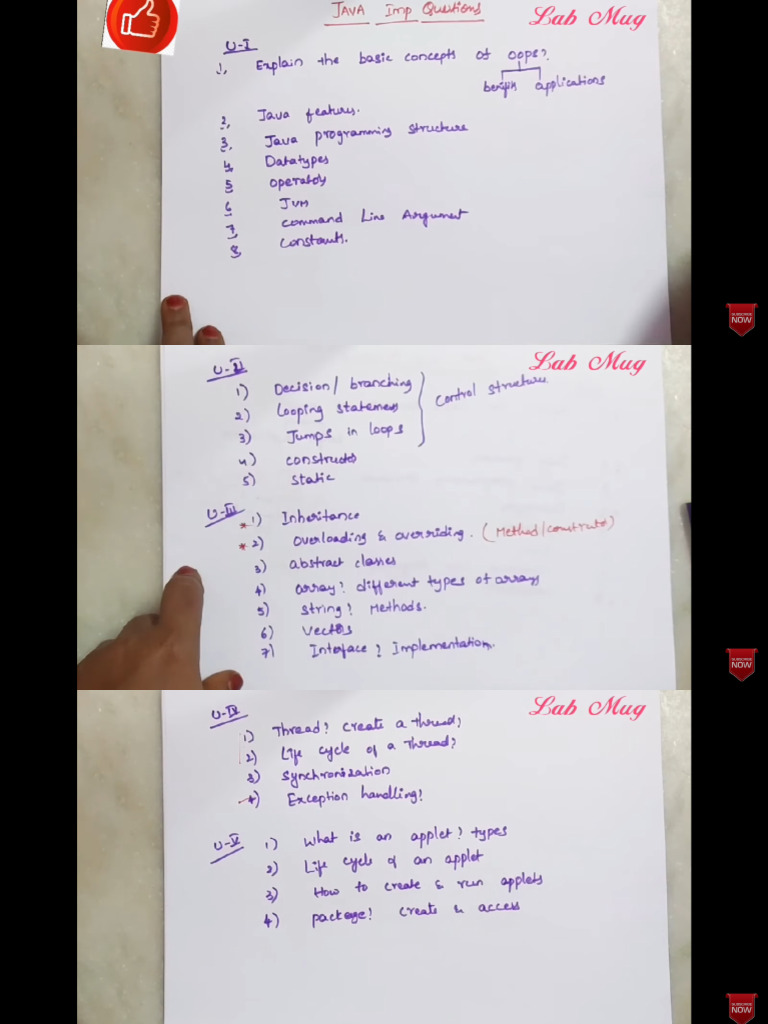 JAVA Imp Questions
Lab Mug
U-I
1, Explain the basic concepts of oops?
benifits applications
2, Java features.
3, Java programming structure
4 Datatypes
5 operators
6 JVM
7 command Line Argument
8 constants.
SUBSCRIBE NOW
U-II
Lab Mug
1) Decision/ branching
2) Looping statements
3) Jumps in loops
control structure
4) constructor
5) static
U-III
*1) Inheritance
*2) overloading & overriding. (Method/construtor)
3) abstract classes
4) array? different types of arrays
5) string? Methods.
6) Vectors
7) Interface? Implementation.
SUBSCRIBE NOW
U-IV
Lab Mug
1) Thread? create a thread?
2) Life cycle of a thread?
3) Synchronization
4) Exception handling?
U-V
1) What is an applet? types
2) Life cycle of an applet
3) How to create & run applets
4) package? create & access
SUBSCRIBE NOW